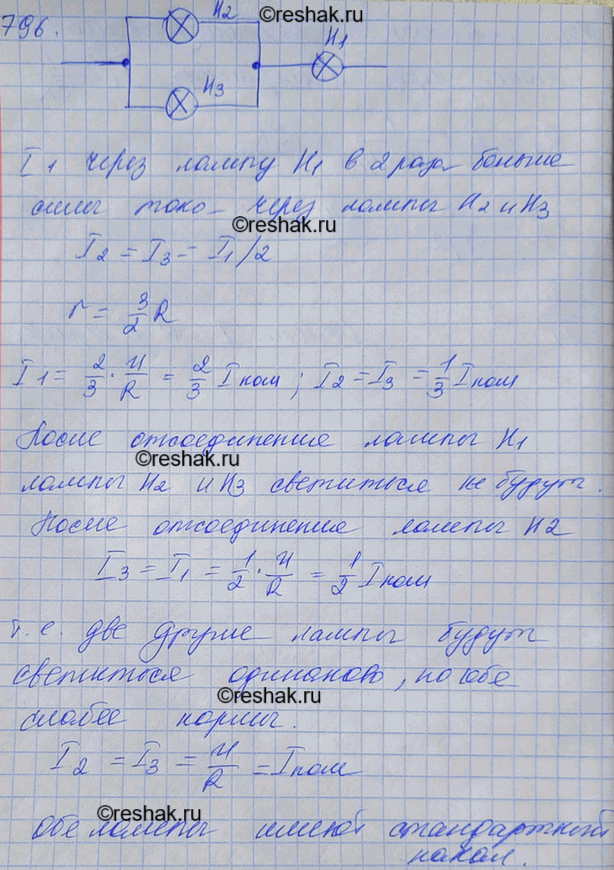 796.
©reshak.ru
H2
H1
H3
I1 через лампу H1 в 2 раза больше
силы тока через лампы H2 и H3
©reshak.ru
I2 = I3 = I1/2
r = 3/2 R
I1 = 2/3 · U/R = 2/3 Iном; I2 = I3 = 1/3 Iном
После отсоединения лампы H1
©reshak.ru
лампы H2 и H3 светиться не будут.
После отсоединения лампы H2
I3 = I1 = 1/2 · U/R = 1/2 Iном
т.е. две другие лампы будут
светиться одинаково, но обе
©reshak.ru
слабее нормы.
I2 = I3 = U/R = Iном
©reshak.ru
обе лампы имеют стандартный
накал.